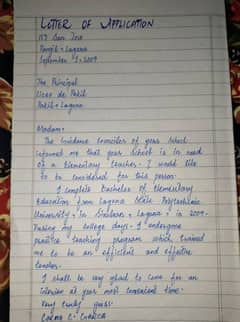 LETTER OF APPLICATION
117 San Jose
Pangil - Laguna
September 23, 2009
The Principal
Liceo de Pakil
Pakil - Laguna
Madam:
The Guidance Councilor of your School
informed me that your School is in need
Of a Elementary teacher. I would like
to be considered for this person.
I complete Bachelor of Elementary
Education from Laguna State Polytechnic
University - in Siniloan - Laguna - in 2009.
During my college days - I undergone
practice teaching program which trained
me to be an efficient and effective
teacher.
I shall be very glad to come for an
interview at your most convenient time.
Very truly yours.